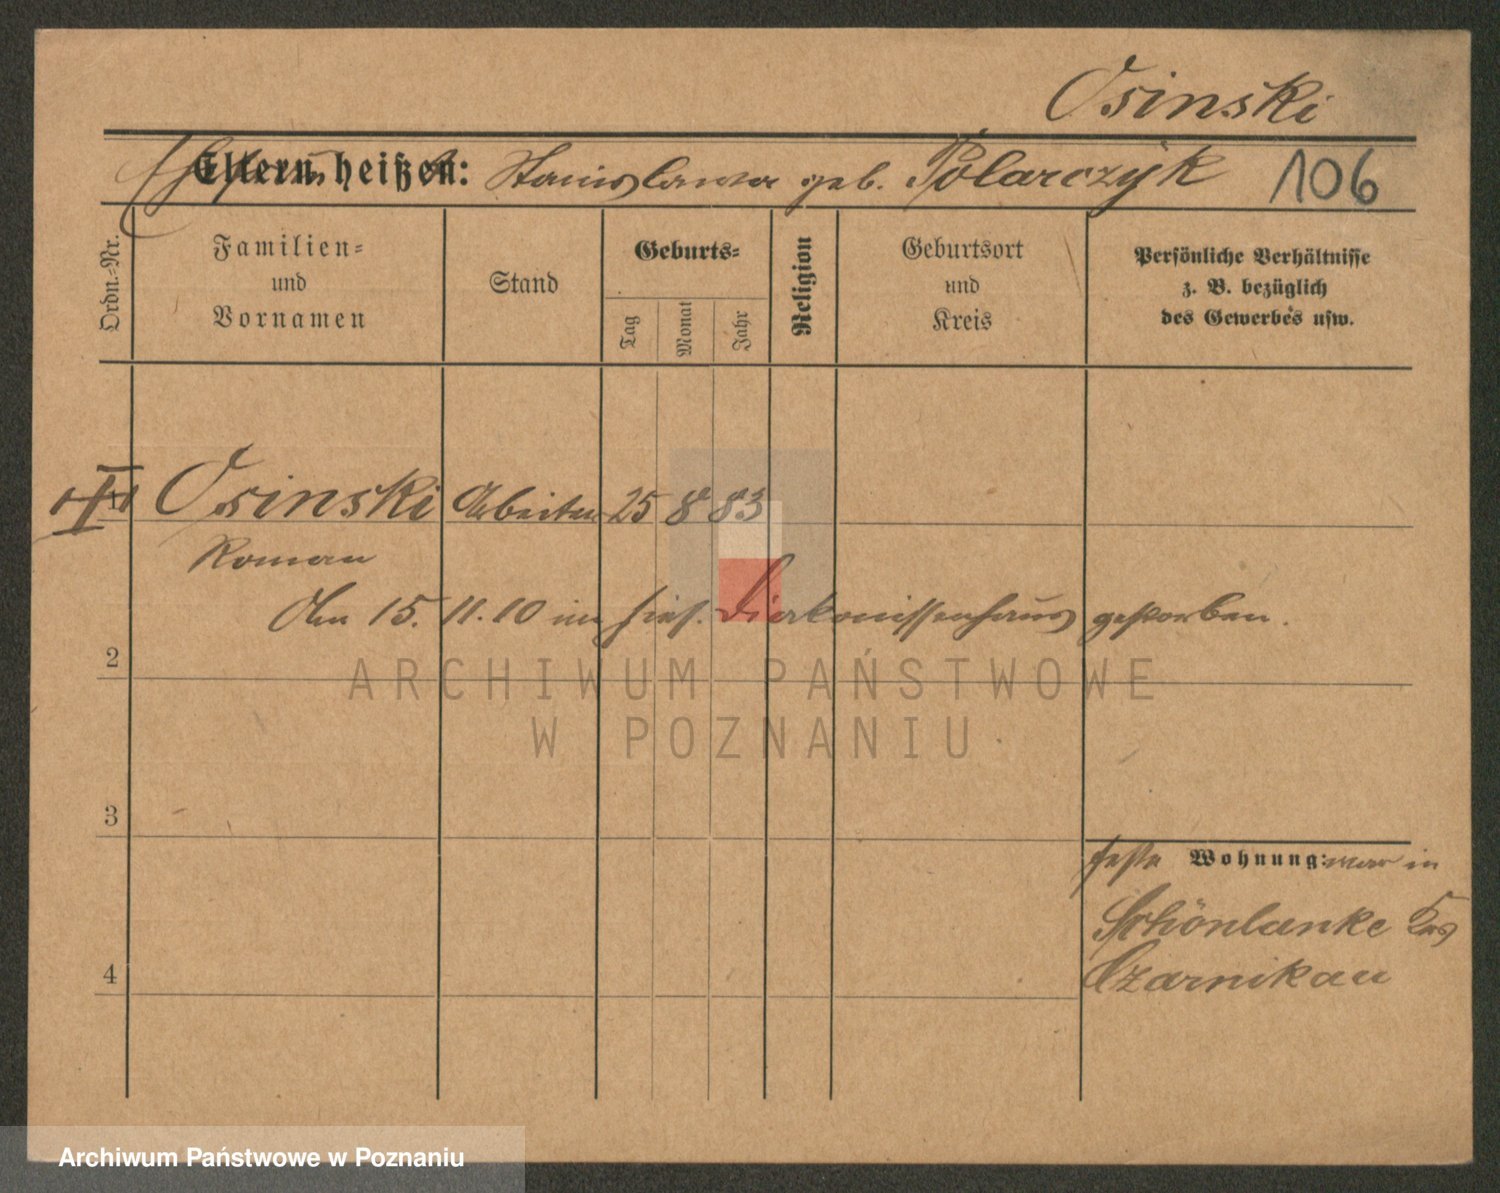 Osinski
Eltern heißen: Stanislawa geb. Polarczyk 106
Ordn.-Nr.
Familien-
und
Vornamen
Stand
Geburts-
Tag
Monat
Jahr
Religion
Geburtsort
und
Kreis
Persönliche Verhältnisse
z. B. bezüglich
des Gewerbes usw.
Osinski Arbeiter 25 8 83
Roman
Am 15. 11. 10 im hies. Diakonissenhaus gestorben.
2
ARCHIWUM PAŃSTWOWE
W POZNANIU
3
feste Wohnung: war in
Schönlanke Krs
Czarnikau
4
Archiwum Państwowe w Poznaniu